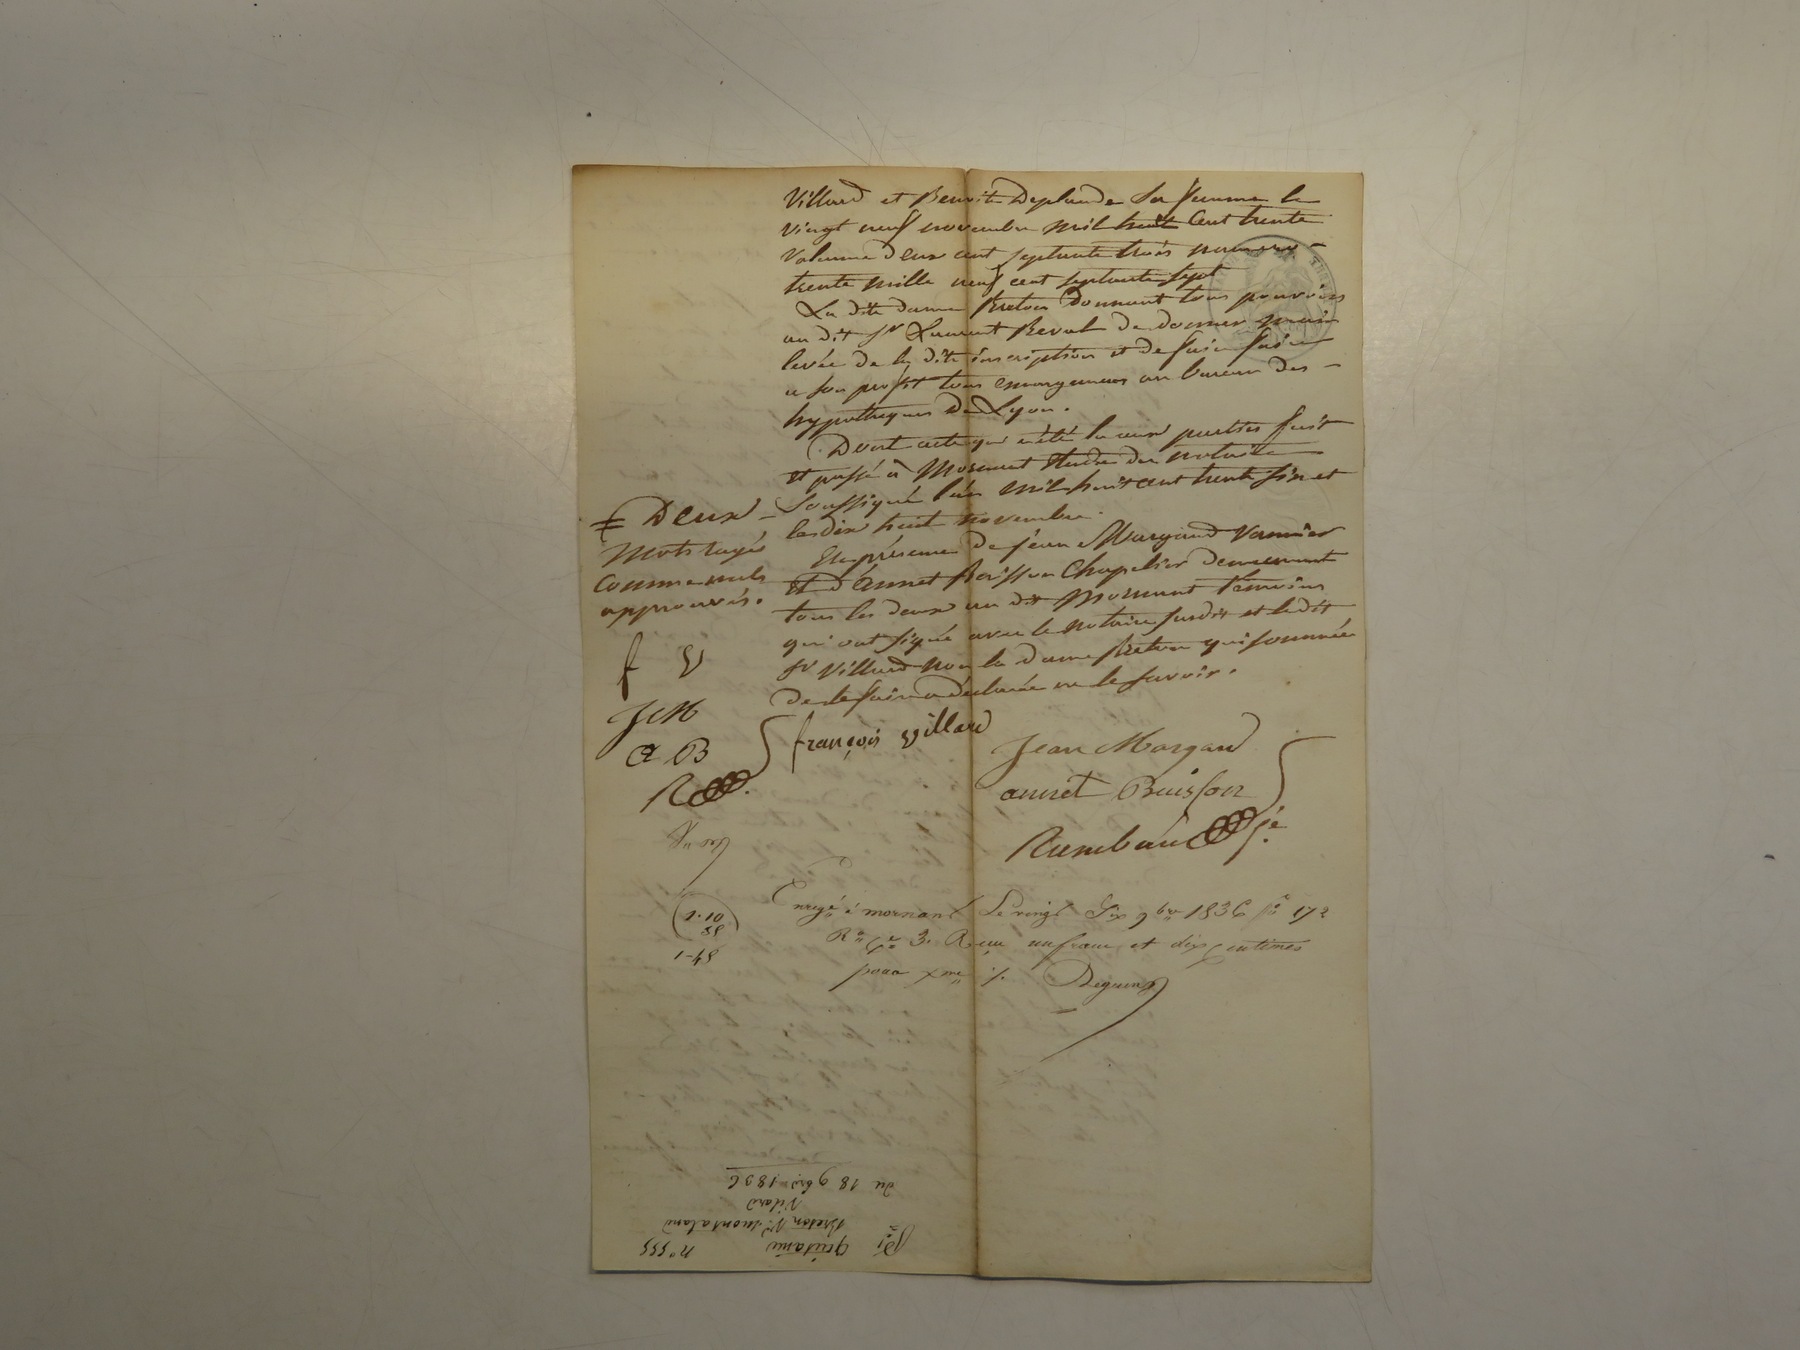 Villard et Benoite Deplaude Sa femme le
Vingt neuf novembre mil huit Cent trente
Volume deux cent septante trois numero
trente mille neuf cent septante sept
La dite dame Breton donnant tous pouvoirs
au dit Sr Laurent de donner main
levée de la dite inscription et de faire faire
a son profit tous au bureau des
hypotheques de Lyon.
Dont acte qui a été lu aux parties fait
et passé à Mornant Etude du notaire
Soussigné l'an mil huit cent trente six et
le dix huit novembre.
En présence de Jean Margand Vannier
et d'annet Boisson Chapelier demeurant
tous les deux au dit Mornant temoins
qui ont signé avec le notaire susdit et le dit
Sr Villard non la dame Breton qui sommée
de le faire a déclarée ne le savoir.
Deux
Mots rayés
Comme nuls
approuvés.
f V
J M
a B
R
françois Villard
Jean Margand
annet Buisson
Rambaud
1-10
38
1-48
Enregé à mornant Le vingt Six 9bre 1836 fo 172
Ro Ce 3. Reçu un franc et dix Centimes
pour xme %.
du 18 9bre 1836
Vilard
Breton Ve
quitance
n° 555